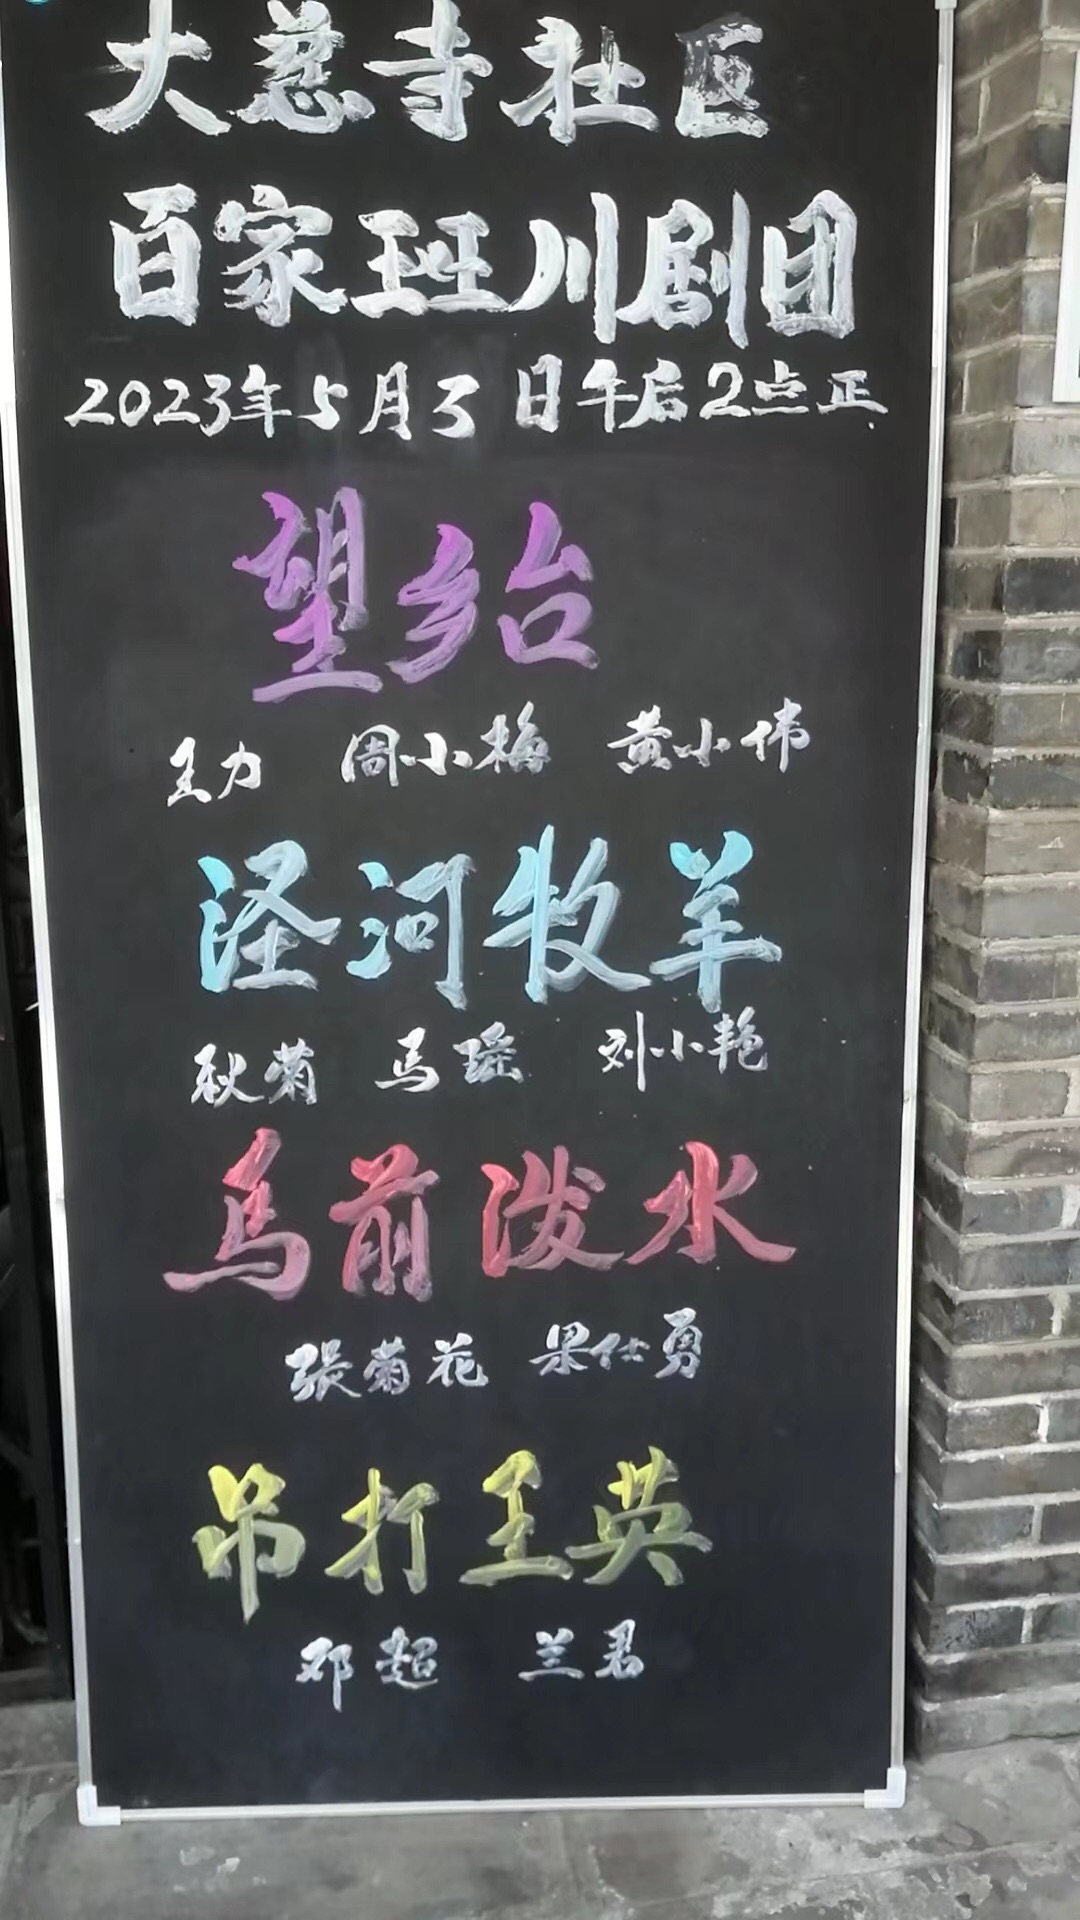 大慈寺社区
百家班川剧团
2023年5月3日午后2点正.
望乡台
王力 周小梅 黄小伟
泾河牧羊
耿菊 马瑶 刘小艳
马前泼水
张菊花 梁仕勇
吊打王英
邓超 兰君